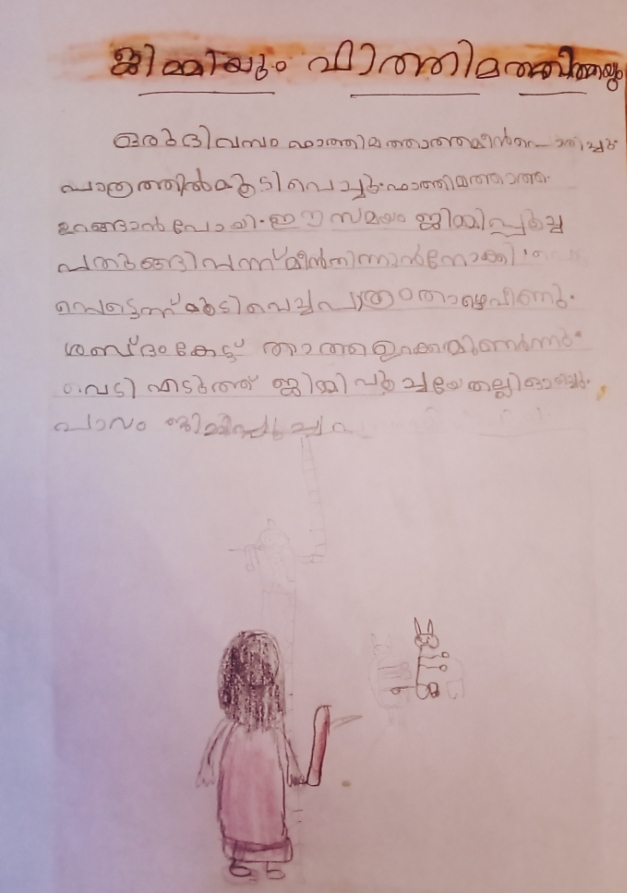 ജിമ്മിയും ഫാത്തിമത്താത്തയും
ഒരു ദിവസം ഫാത്തിമത്താത്ത മീൻ പൊരിച്ചു
പാത്രത്തിൽ മൂടി വെച്ചു. ഫാത്തിമത്താത്ത
ഉറങ്ങാൻ പോയി. ഈ സമയം ജിമ്മിപ്പൂച്ച
പതുങ്ങി വന്ന് മീൻ തിന്നാൻ നോക്കി
പെട്ടെന്ന് മൂടി വെച്ച പാത്രം താഴെ വീണു.
ശബ്ദം കേട്ട് താത്ത ഉറക്കമുണർന്നു.
വടി എടുത്ത് ജിമ്മി പൂച്ചയെ തല്ലി ഓടിച്ചു.
പാവം ജിമ്മിപ്പൂച്ച